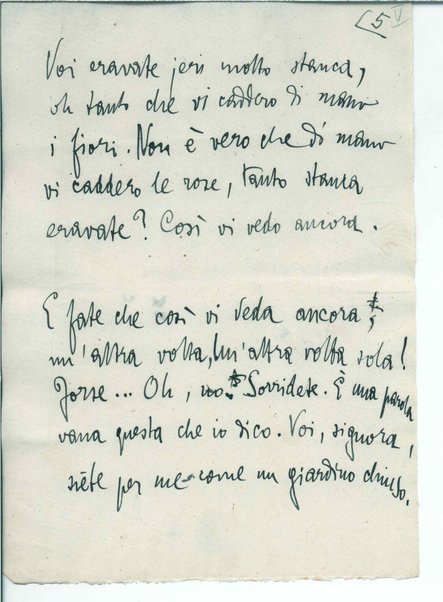 [5 V
Voi eravate jeri molto stanca,
oh tanto che vi caddero di mano
i fiori. Non è vero che di mano
vi caddero le rose, tanto stanca
eravate? Così vi vedo ancora.
E fate che così vi veda ancora
un'altra volta, un'altra volta sola!
Forse... Oh, no. Sorridete. È una parola
vana questa che io dico. Voi, signora,
siete per me come un giardino chiuso.